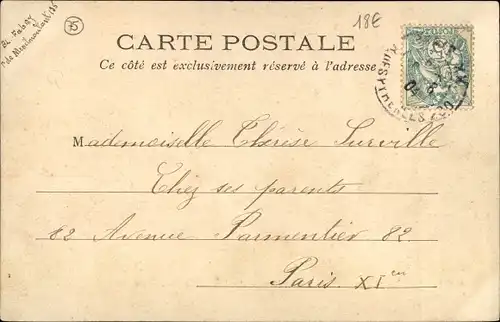 18€
CARTE POSTALE
Ce côté est exclusivement réservé à l'adresse
Mademoiselle Thérèse Surville
Chez ses parents
82 Avenue Parmentier 82
Paris XIem